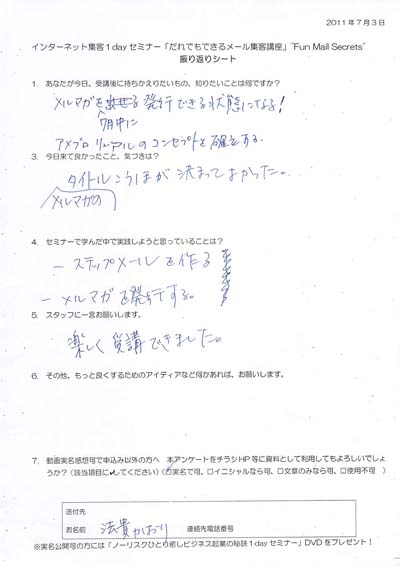 2011年7月3日
インターネット集客1dayセミナー「だれでもできるメール集客講座」"Fun Mail Secrets"
振り返りシート
1. あなたが今日、受講後に持ちかえりたいもの、知りたいことは何ですか?
メルマガを 発行できる状態になる!
7月中に
アメブロ リニューアルのコンセプトを確立する.
3. 今日来て良かったこと、気づきは?
タイトルこうほが決まってよかった。
メルマガの
4. セミナーで学んだ中で実践しようと思っていることは?
— ステップメールを作る
— メルマガを発行する。
5. スタッフに一言お願いします。
楽しく受講できました。
6. その他、もっと良くするためのアイディアなど何かあれば、お願いします。
7. 動画実名感想可で申込み以外の方へ 本アンケートをチラシHP等に資料として利用してもよろしいでしょ
うか?(該当項目に✓してください)(☑実名で可、□イニシャルなら可、□文章のみなら可、□使用不可 )
送付先
お名前 法貴かおり 連絡先電話番号
※実名公開可の方には「ノーリスクひとり癒しビジネス起業の秘訣1dayセミナー」DVDをプレゼント!